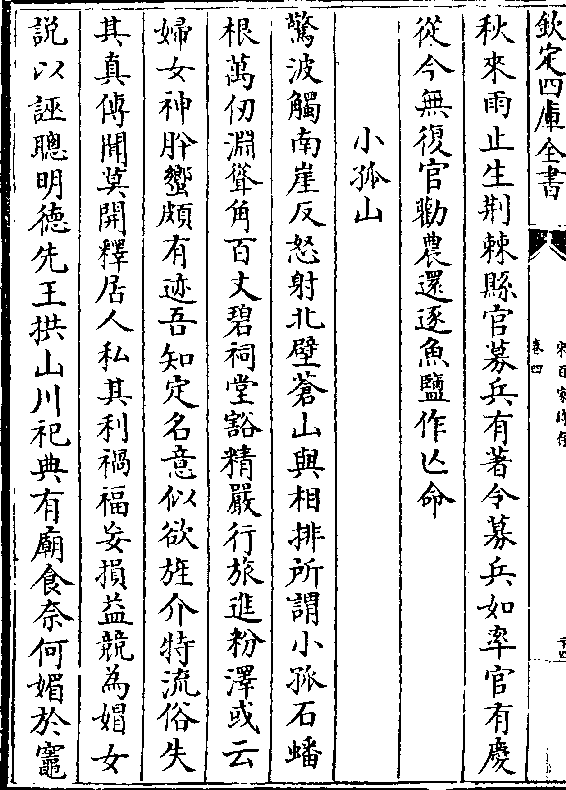 欽定四庫全書
卷四
秋來雨止生荆棘縣官募兵有著令募兵如率官有慶
從今無復官勸農還逐魚鹽作亡命
小孤山
驚波觸南崖反怒射北壁蒼山與相排所謂小孤石蟠
根萬仞淵聳角百丈碧祠堂豁精嚴行旅進粉澤或云
婦女神肸蠁頗有迹吾知定名意似欲旌介特流俗失
其真傅㑹莫開釋居人私其利禍福妄損益競為娼女
説以誣聰明德先王拱山川祀典有廟食奈何媚於竈